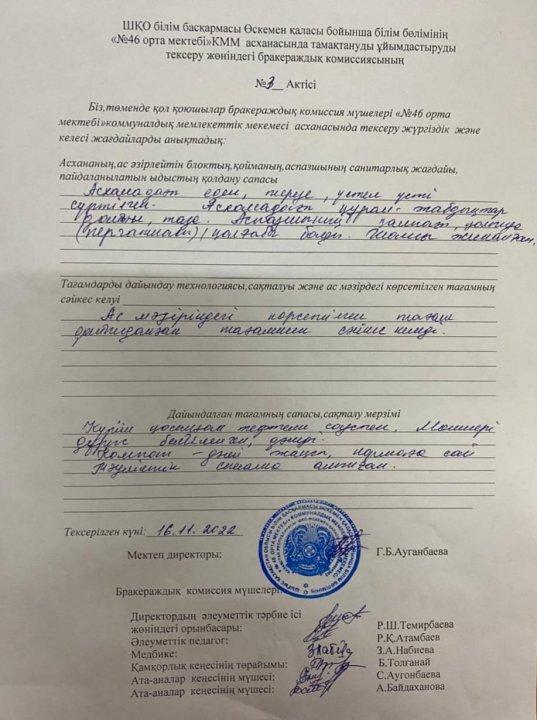 ШҚО білім басқармасы Өскемен қаласы бойынша білім бөлімінің
«№46 орта мектебі»КММ асханасында тамақтануды ұйымдастыруды
тексеру жөніндегі бракераждық комиссиясының
№3 Актісі
Біз,төменде қол қоюшылар бракераждық комиссия мүшелері «№46 орта
мектебі»коммуналдық мемлекеттік мекемесі асханасында тексеру жүргіздік және
келесі жағдайларды анықтадық:
Асхананың,ас әзірлейтін блоктың,қойманың,аспазшының санитарлық жағдайы,
пайдаланылатын ыдыстың қолдану сапасы
Асханадағы еден, терезе, үстел үсті
сүртілген. Асханадағы құрал-жабдықтар
таза. Аспазшының
(перчаткасы) қолғабы болды. жиналған,
Тағамдарды дайындау технологиясы,сақталуы және ас мәзірдегі көрсетілген тағамның
сәйкес келуі
Ас мәзіріндегі көрсетілген тағам
дайындалған тағаммен сәйкес келді.
Дайындалған тағамның сапасы,сақталу мерзімі
Күріш қосылған тефтели соуспен. Мөлшері
дұрыс бөлінген, дәмді.
Компот - дәмі жақсы, нормаға сай
Тәуліктік сынама алынған.
Тексерілген күні: 16.11.2022
Мектеп директоры: Г.Б.Ауганбаева
Бракераждық комиссия мүшелері
Директордың әлеуметтік тәрбие ісі
жөніндегі орынбасары: Р.Ш.Темирбаева
Әлеуметтік педагог: Р.Қ.Атамбаев
Медбике: З.А.Набиева
Қамқорлық кеңесінің төрайымы: Б.Толғанай
Ата-аналар кеңесінің мүшесі: С.Аугонбаева
Ата-аналар кеңесінің мүшесі: А.Байдаханова